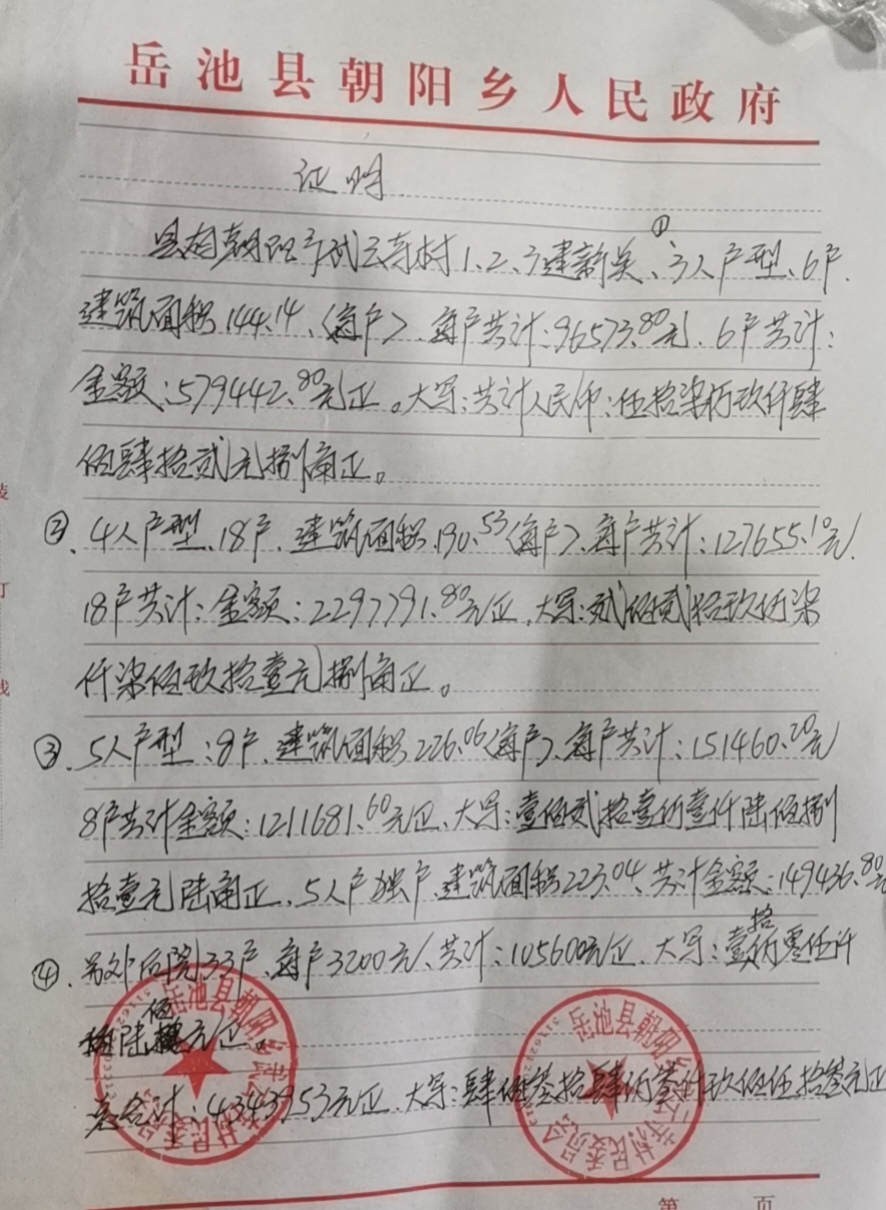 岳池县朝阳乡人民政府
证明
县相朝阳乡武云寺村1、2、3建新关、①3人户型、6户.
建筑面积144.14、(每户)、每户共计:96573.80元、6户共计:
金额:579442.80元正。大写:共计人民币:伍拾柒万玖仟肆
佰肆拾贰元捌角正。
②、4人户型、18户、建筑面积190.53(每户)、每户共计:127655.10元.
18户共计:金额:2297791.80元正、大写:贰佰贰拾玖万柒
仟柒佰玖拾壹元捌角正。
③、5人户型:8户、建筑面积226.06(每户)、每户共计:151460.20元
8户共计金额:1211681.60元正、大写:壹佰贰拾壹万壹仟陆佰捌
拾壹元陆角正、5人户独户、建筑面积223.04、共计金额:149436.80元
④、另外后院33户、每户3200元、共计:105600元正、大写:壹拾万零伍仟
陆佰元正。
总合计:4343953元正、大写:肆佰叁拾肆万叁仟玖佰伍拾叁元正
岳池县朝阳乡武云寺村村民委员会
岳池县朝阳乡武云寺村村民委员会
第 页